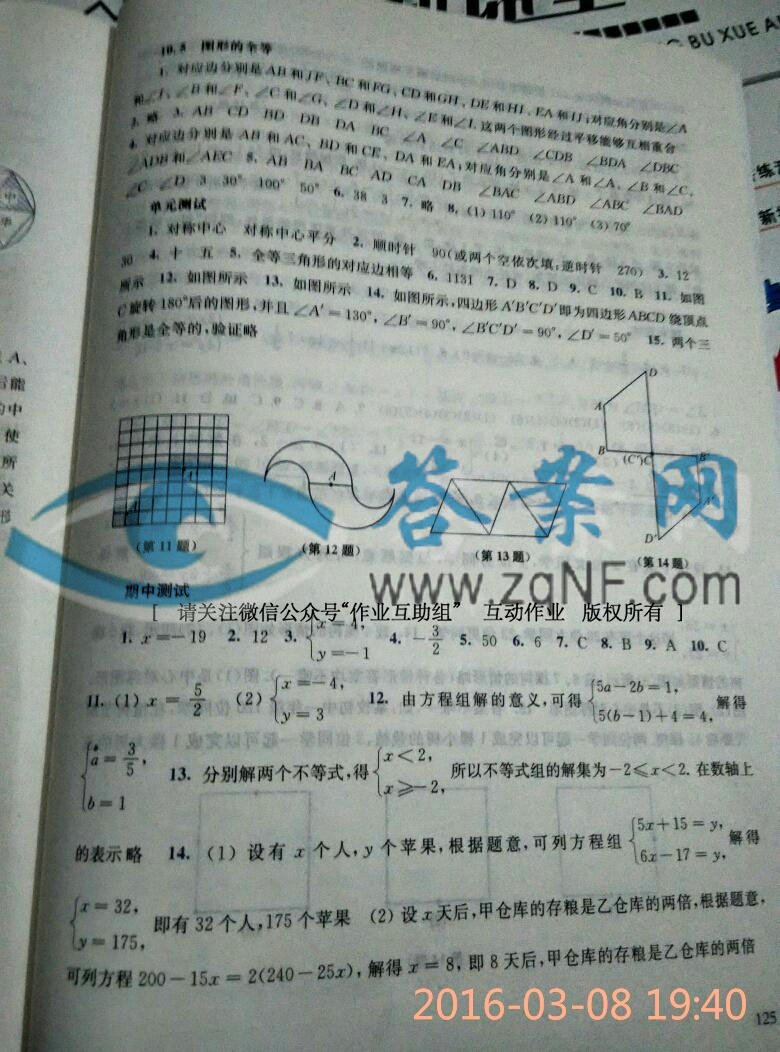 BU XUE
10.5 图形的全等
1. 对应边分别是 AB 和 JF、BC 和 FG、CD 和 GH、DE 和 HI、EA 和 IJ;对应角分别是∠A
和∠J、∠B 和∠F、∠C 和∠G、∠D 和∠H、∠E 和∠I. 这两个图形经过平移能够互相重合
2. 略 3. AB CD BD DB DA BC ∠A ∠C ∠ABD ∠CDB ∠BDA ∠DBC
4. 对应边分别是 AB 和 AC、BD 和 CE、DA 和 EA;对应角分别是∠A 和∠A、∠B 和∠C、
∠ADB 和∠AEC 5. AB BA BC AD CA DB ∠BAC ∠ABD ∠ABC ∠BAD
∠C ∠D 3 30° 100° 50° 6. 38 3 7. 略 8. (1) 110° (2) 110° (3) 70°
单元测试
1. 对称中心 对称中心平分 2. 顺时针 90(或两个空依次填:逆时针 270) 3. 12
30 4. 十 五 5. 全等三角形的对应边相等 6. 1131 7. D 8. D 9. C 10. B 11. 如图
所示 12. 如图所示 13. 如图所示 14. 如图所示,四边形 A′B′C′D′即为四边形 ABCD 绕顶点
C 旋转 180°后的图形,并且∠A′=130°,∠B′=90°,∠B′C′D′=90°,∠D′=50° 15. 两个三
角形是全等的,验证略
D
A
B (C′)C B′
A′
D′
A
A
(第 11 题) (第 12 题) (第 13 题) (第 14 题)
答案网
www.zqNF.com
期中测试
[ 请关注微信公众号“作业互助组” 互动作业 版权所有 ]
1. x=-19 2. 12 3. {x=4, y=-1 4. -3/2 5. 50 6. 6 7. C 8. B 9. A 10. C
11. (1) x=5/2 (2) {x=-4, y=3 12. 由方程组解的意义,可得{5a-2b=1, 5(b-1)+4=4, 解得
{a=3/5, b=1 13. 分别解两个不等式,得{x<2, x≥-2, 所以不等式组的解集为-2≤x<2. 在数轴上
的表示略 14. (1) 设有 x 个人,y 个苹果,根据题意,可列方程组{5x+15=y, 6x-17=y, 解得
{x=32, y=175, 即有 32 个人,175 个苹果 (2) 设 x 天后,甲仓库的存粮是乙仓库的两倍,根据题意,
可列方程 200-15x=2(240-25x),解得 x=8,即 8 天后,甲仓库的存粮是乙仓库的两倍
2016-03-08 19:40
125